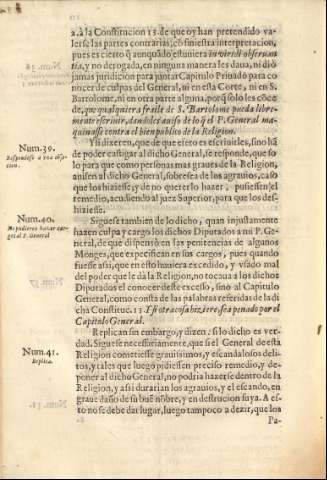 2. à la Constitucion 15. de que oy han pretendido va-
lerse las partes contrarias, cõ siniestra interpretacion,
pues es cierto q̃ aunque estuuiera in viridi obseruan-
tia, y no derogada, en ninguna manera les daua, ni dió
jamàs juridicion para juntar Capitulo Priuado para co-
nocer de culpas del General, ni en esta Corte, ni en S.
Bartolome, ni en otra parte alguna, porq̃ solo les cõce-
de, que qualquiera fraile de S. Bartolome pueda libre-
mente escriuir, dandoles auiso de lo q̃ el P. General ma-
quinasse contra el bien publico de la Religion.
Num. 39.
Respondese a una obje-
cion.
Y si dixeren, que de que efeto es escriuirles, sino hã
de poder castigar al dicho General, se responde, que so-
lo para que como personas mas graues de la Religion,
auisen al dicho General, sobresea de los agrauios, caso
que los hiziesse, y de no querer lo hazer, pusiessen el re-
medio, acudiendo al juez Superior, para que los des-
hiziesse.
Num. 40.
No pudieron hazer car-
go al P. General
Siguese tambien de lo dicho, quan injustamente
hazen culpa y cargo los dichos Diputados a mi P. Ge-
neral, de que dispensò en las penitencias de algunos
Monges, que especifican en sus cargos, pues quando
fuesse assi, que en esto huuiera excedido, y vsado mal
del poder que le da la Religion, no tocaua a los dichos
Diputados el conocer deste excesso, sino al Capitulo
General, como consta de las palabras referidas de la di-
cha Constituc. 15 Y si otra cosa hiziere, sea penado por el
Capitulo General.
Num. 41.
Replica.
Replican sin embargo, y dizen: si lo dicho es ver-
dad. Siguese necessariamente, que si el General de esta
Religion cometiesse grauissimos, y escandalosos deli-
tos, y tales que luego pidiessen preciso remedio, y de-
poner al dicho General, no podria hazerse dentro de la
Religion, y assi durarian los agrauios, y el escando, en
graue daño de su buẽ nõbre, y en destrucion suya. A es-
to no se debe dar lugar, luego tampoco a dezir, que los
Pa-